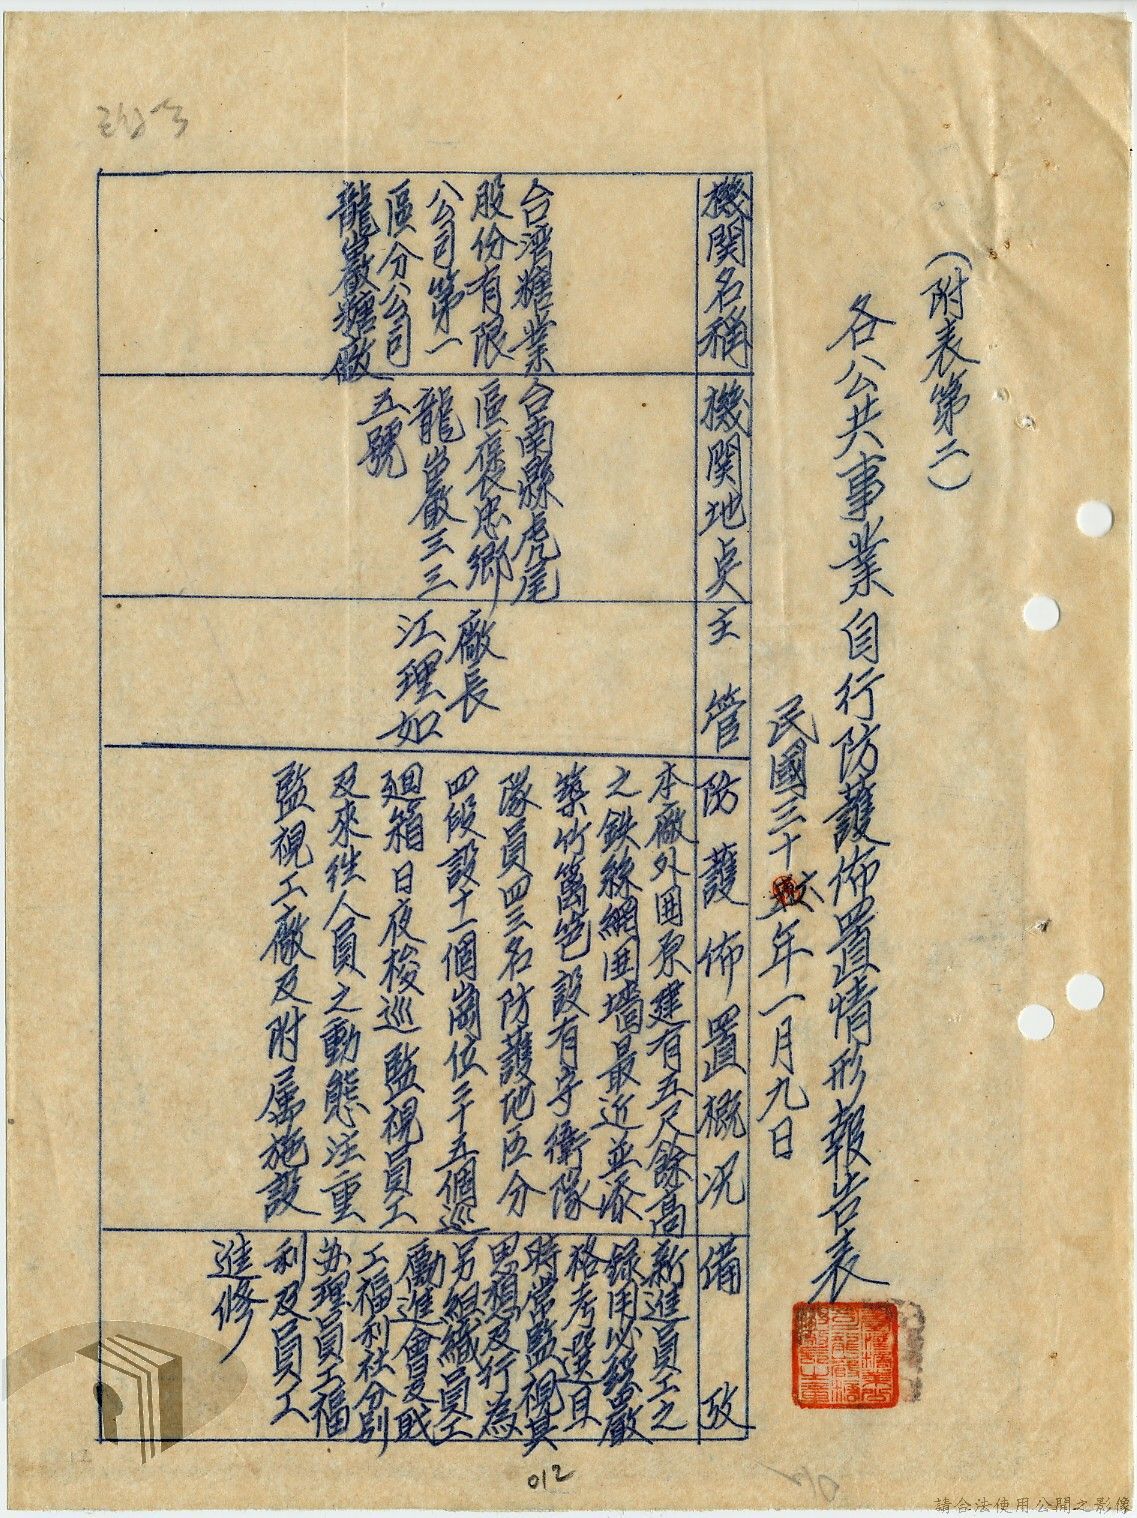 (附表第二)
各公共事業自行防護佈置情形報告表
民國三十六年一月九日
機関名稱
機関地点
主管
防護佈置概况
備攷
台湾糖業
股份有限
公司第一
區分公司
龍巖糖廠
台南縣虎尾
區褒忠鄉
龍巖三三
五號
廠長
江理如
本廠外囲原建有五尺餘高
之鉄絲網囲墻最近並添
築竹篱笆設有守衛隊
隊員四三名防護地区分
四段設十一個崗位二十五個巡
廻箱日夜梭巡監視員工
及來往人員之動態注重
監視工廠及附属施設
新進員工之
録用必須嚴
格考選且
時常監視其
思想及行為
另組織員工
勵進會及戝
工福利社分别
办理員工福
利及員工
進修
012
請合法使用公開之影像